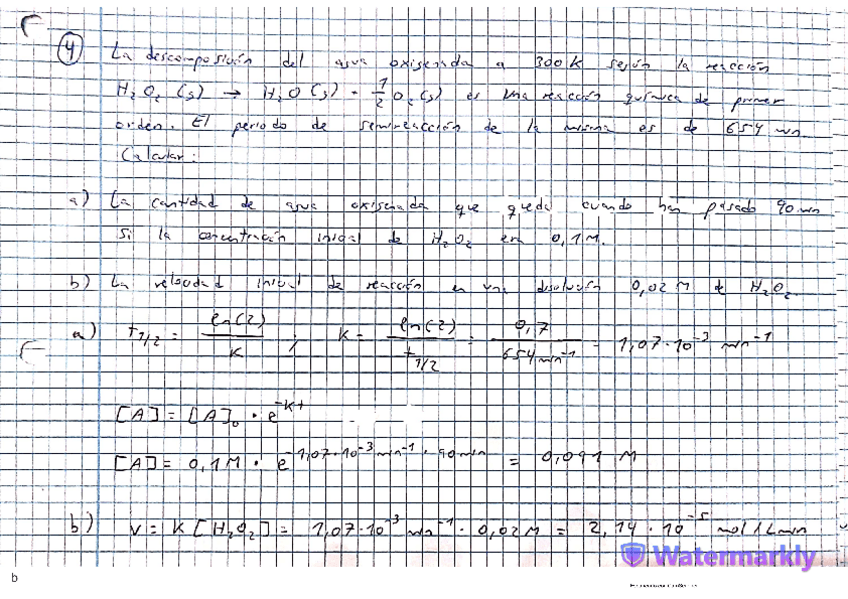 4 La descomposición del agua oxigenada a 300 K según la reacción
H₂O₂ (g) → H₂O (g) + 1/2 O₂ (g) es una reacción química de primer
orden. El periodo de semireacción de la misma es de 654 min
Calcular:
a) La cantidad de agua oxigenada que queda cuando han pasado 90 min
si la concentración inicial de H₂O₂ era 0,1 M.
b) La velocidad inicial de reacción en una disolución 0,02 M de H₂O₂.
a) t1/2 = ln(2)/K ; K = ln(2)/t1/2 = 0,7/654 min⁻¹ = 1,07·10⁻³ min⁻¹
[A] = [A]₀ · e^-Kt
[A] = 0,1 M · e^-1,07·10⁻³ min⁻¹ · 90 min = 0,091 M
b) v = K [H₂O₂] = 1,07·10⁻³ min⁻¹ · 0,02 M = 2,14 · 10⁻⁵ mol/L min
Watermarkly
b